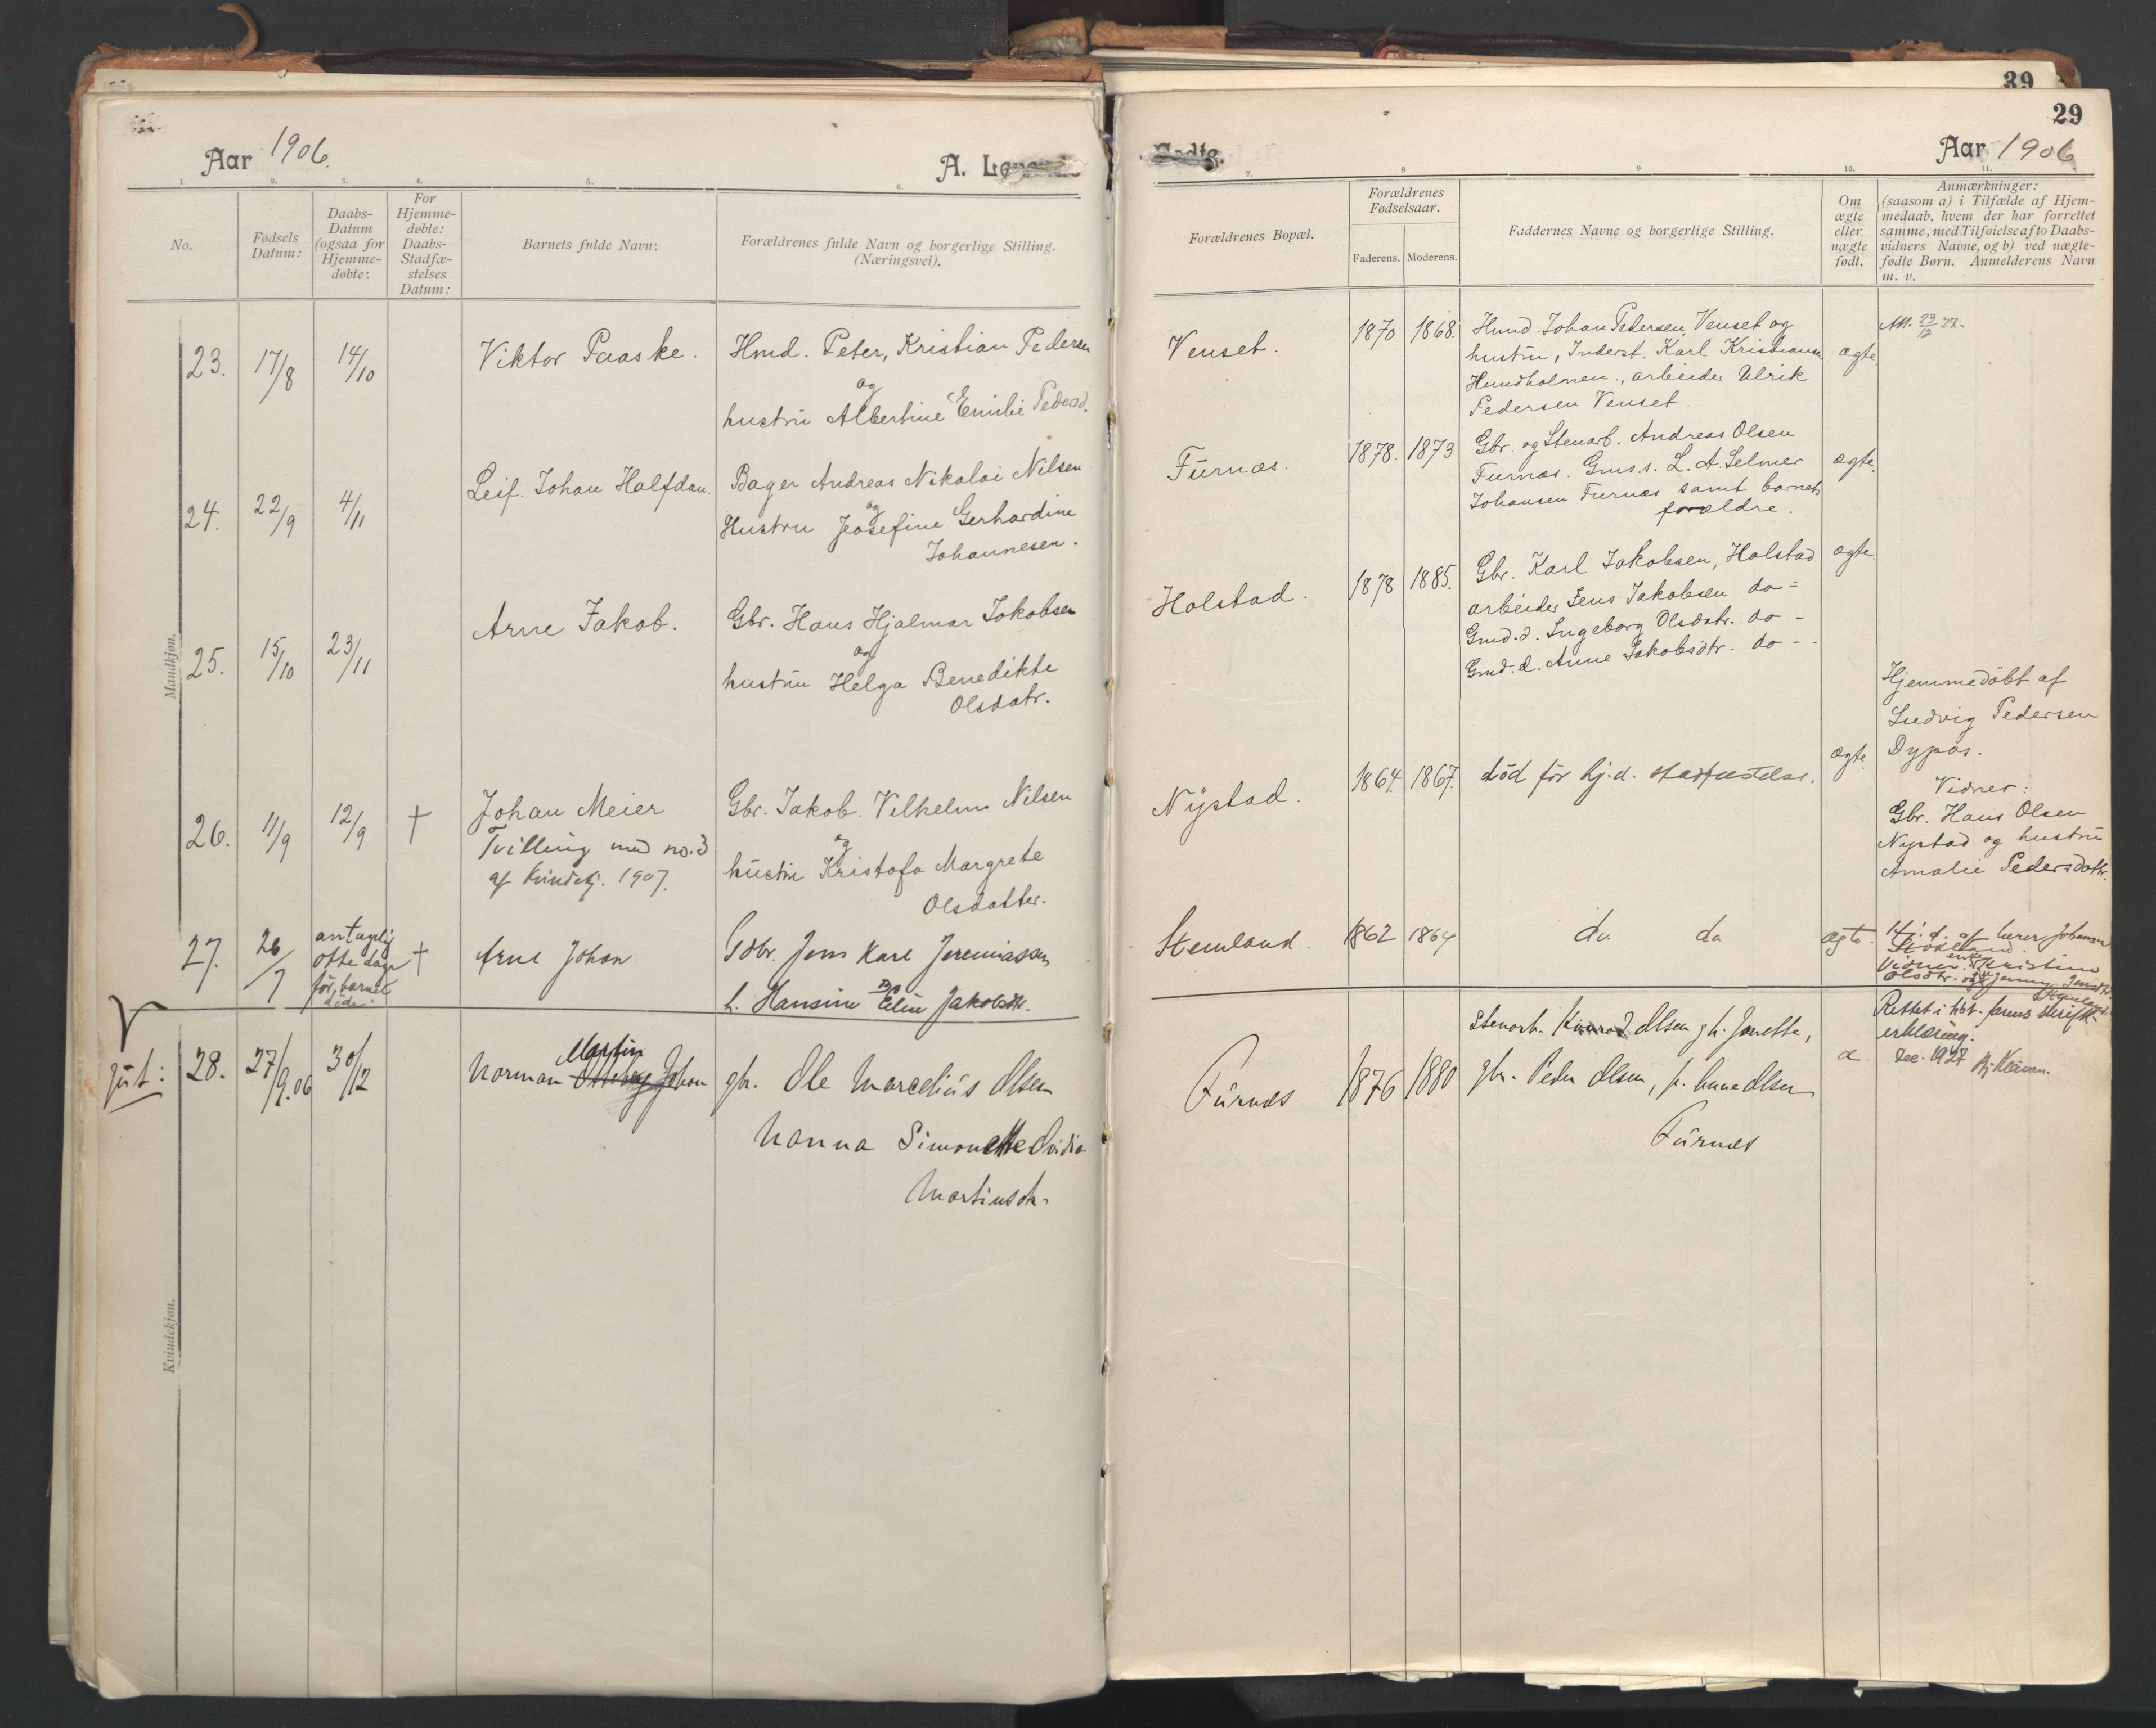 39
29
Aar 1906.
A. Levende
Fødte.
Aar 1906
1. 2. 3. 4. 5. 6.
7. 8 9 10. 11.
No.
Fødsels Datum:
Daabs-Datum (ogsaa for Hjemme-døbte:
For Hjemme-døbte: Daabs-Stadfæ-stelses Datum:
Barnets fulde Navn:
Forældrenes fulde Navn og borgerlige Stilling.
(Næringsvei).
Forældrenes Bopæl.
Forældrenes Fødselsaar.
Faderens. Moderens.
Faddernes Navne og borgerlige Stilling.
Om ægte eller uægte født.
Anmærkninger:
(saasom a) i Tilfælde af Hjem-
medaab, hvem der har forrettet
samme, med Tilføielse af to Daabs-
vidners Navne, og b) ved uægte-
fødte Børn. Anmelderens Navn
m. v.
Mandkjøn.
Kvindekjøn.
23. 17/8 14/10 Viktor Paaske.
Hmd. Peter, Kristian Pedersen
og
hustru Albertine Emilie Pedersd.
Venset. 1870 1868.
Hmd. Johan Pedersen, Venset og
hustru, Inderst. Karl Kristiansen
Hundholmen., arbeider Ulrik
Pedersen Venset.
ægte.
Att. 23/12 27.
24. 22/9 4/11 Leif. Johan Halfdan.
Bager Andreas Nikolai Nilsen
og
Hustru Josefine Gerhardine
Johannesen.
Furnæs. 1878. 1873
Gbr. og Stenarb. Andreas Olsen
Furnæs. Gms.s. L. A. Selmer
Johansen Furnæs samt barnets
forældre.
ægte.
25. 15/10 23/11 Arne Jakob.
Gbr. Hans Hjalmar Jakobsen
og
hustru Helga Benedikte
Olsdatr.
Holstad. 1878 1885.
Gbr. Karl Jakobsen, Holstad
arbeider Jens Jakobsen do =
Gmd.d. Ingeborg Olsdatr. do -
Gmd.d. Anne Jakobsdtr. do -
ægte.
26. 11/9 12/9 † Johan Meier
Tvilling med no. 3
af Kvindekj. 1907.
Gbr. Jakob Vilhelm Nilsen
og
hustru Kristofa Margrete
Olsdatter.
Nystad. 1864. 1867.
død før hj.d. stadfæstelse.
ægte
Hjemmedøbt af
Ludvig Pedersen
Dypøs.
Vidner:
Gbr. Hans Olsen
Nystad og hustru
Amalie Pedersdottr.
27. 26/7 antagelig
otte dage
før, barnet
døde.
† Arne Johan
Gdbr. Jens Kare Jeremiassen
og
h. Hansine Elin Jakobsdtr.
Stemland. 1862 1864
do. do
ægte.
Hj. d. af lærer Johansen
Vidner: enke Kristine
Olsdtr. og Jenny Jensdtr.
Stemland.
28. 27/9.06 30/12 Norman Martin Johan
gbr. Ole Marcelius Olsen
Nanna Simonette Ovidia
Martinsdtr.
Furnes 1876 1880
Stenarb. Konrad Olsen g h. Janette,
gbr. Peder Olsen, p. Anne Olsen
Furnes
Rettet i hht. farens skriftl.
erklæring.
Dec. 1927